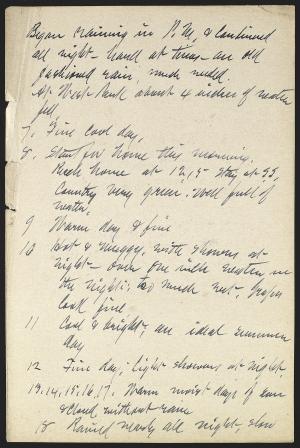 Began raining in P.M. & continued
all night - hard at times - an old
fashioned rain, much needed.
At West Park about 4 inches of water
fell.
7. Fine cool day.
8. Start for home this morning.
Reach home at 12,15
Country very green. Well full of
water,
9 Warm day & fine
10 Hot & muggy, with showers at
night - over one inch water in
the night; too much wet. Grapes
look fine
11 Cool & bright, an ideal summer
day
12 Fine day; light showers at night.
13.14.15.16.17. Warm moist days of sun
& cloud without rain
18 Rained nearly all night, slow